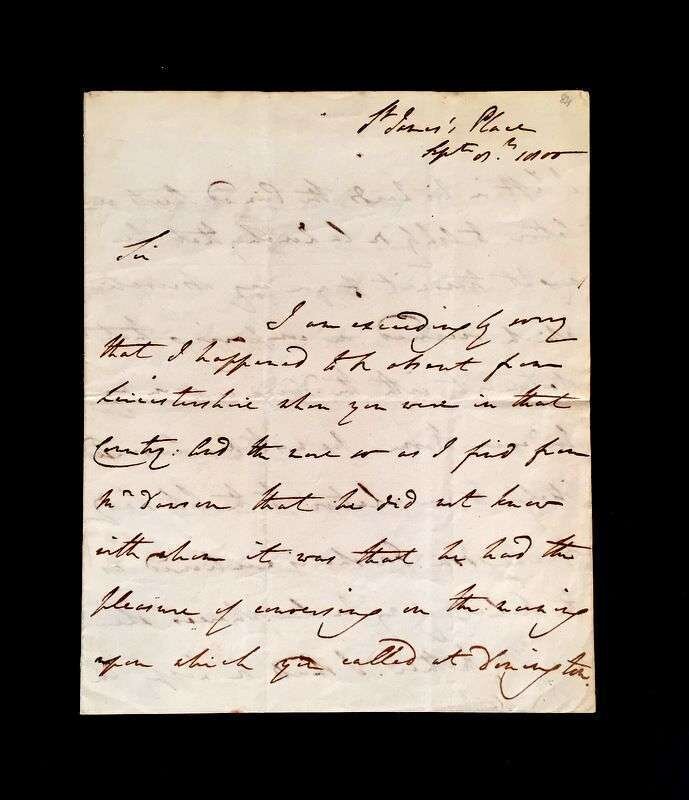 St James's Place
Septr 8th 1800
Sir
I am exceedingly sorry
that I happened to be absent from
Leicestershire when you were in that
County: And the more so as I find from
Mr Dawson that he did not know
with whom it was that he had the
pleasure of conversing on the morning
upon which you called at Donington.